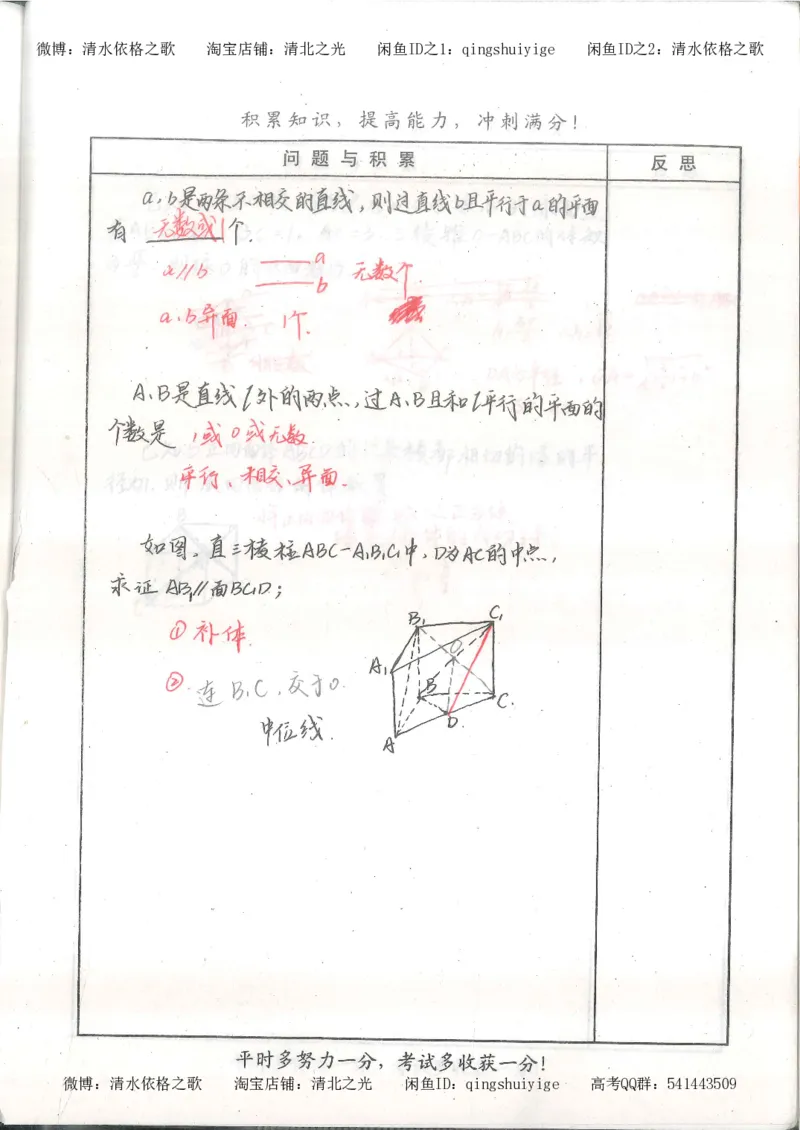 微博：清水依格之歌 淘宝店铺：清北之光 闲鱼ID之1：qingshuiyige 闲鱼ID之2：清水依格之歌
积累知识，提高能力，冲刺满分！
问题与积累 反思
a,b是两条不相交的直线,则过直线b且平行于a的平面
有 无数或1个.
a∥b a b 无数个.
a,b异面. 1个.
A,B是直线l外的两点,过A,B且和l平行的平面的
个数是 1或0或无数.
平行、相交、异面.
如图,直三棱柱ABC-A1B1C1中,D为AC的中点,
求证AB1∥面BC1D;
①补体.
②.连B1C,交于O.
中位线.
B1 C1
O
A1
B
C
D
A
平时多努力一分，考试多收获一分！
微博：清水依格之歌 淘宝店铺：清北之光 闲鱼ID：qingshuiyige 高考QQ群：541443509